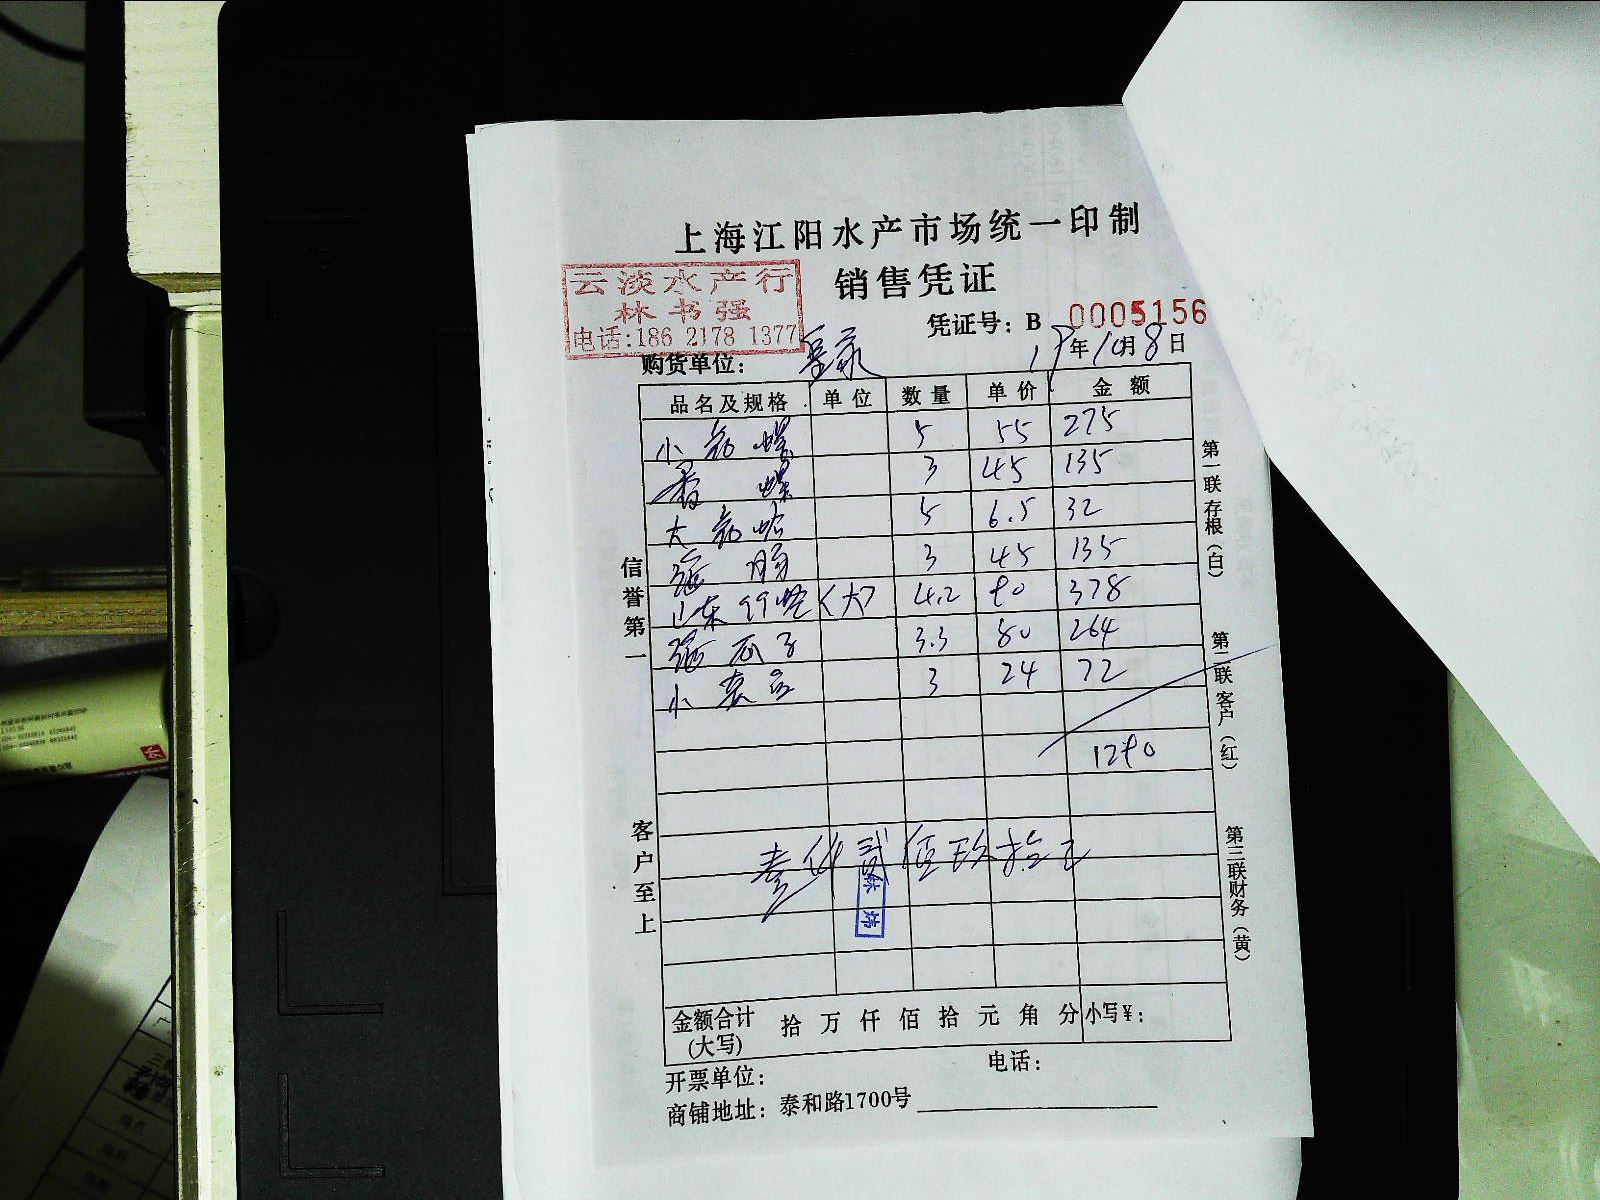 上海江阳水产市场统一印制
销售凭证
云淡水产行
林书强
电话:186 2178 1377
凭证号: B 0005156
购货单位: 年10月8日
品名及规格 单位 数量 单价 金额
小 螺 5 55 275
香 螺 3 45 135
大 蛤 5 6.5 32
海 肠 3 45 135
山东 蛏 <大> 4.2 90 378
海瓜子 3.3 80 264
小 3 24 72
1290
壹仟贰佰玖拾元
林炜
金额合计(大写) 拾 万 仟 佰 拾 元 角 分 小写¥:
开票单位: 电话:
商铺地址: 泰和路1700号
信誉第一
客户至上
第一联存根(白)
第二联客户(红)
第三联财务(黄)